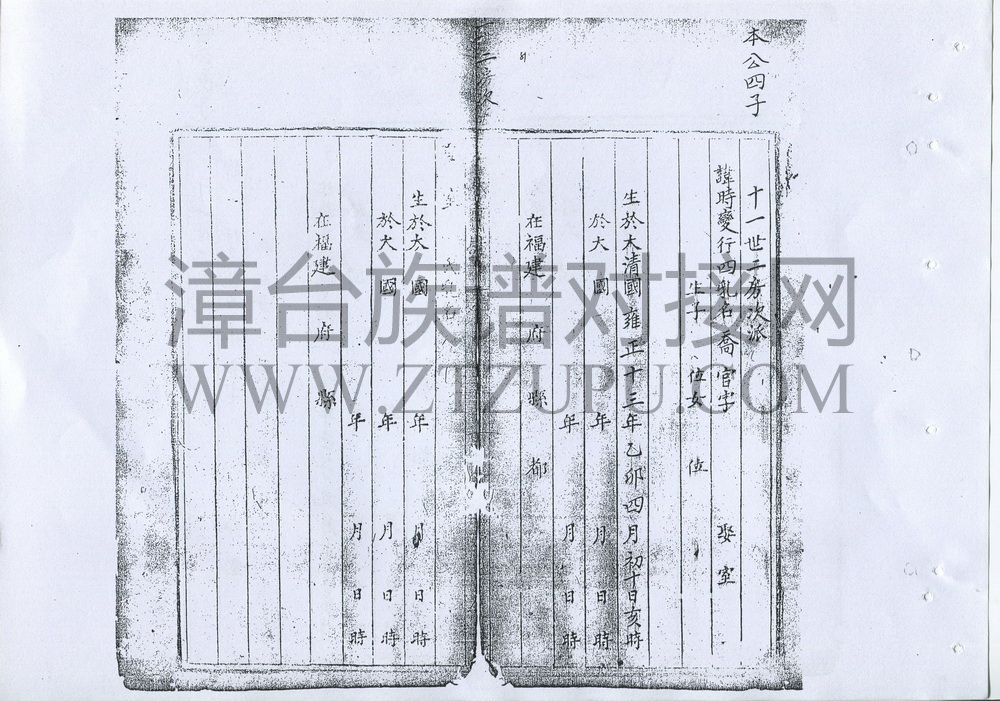 本公四子
十一世二房次派
諱時變行四乳名喬 官字 娶室
生子 位女 位
生於大清國雍正十三年乙卯四月初十日亥時
於大 國 年 月 日 時
年 月 日 時
在福建 府 縣 都
二房次
生於大 國 年 月 日 時
於大 國 年 月 日 時
年 月 日 時
在福建 府 縣
漳台族谱对接网
WWW.ZTZUPU.COM